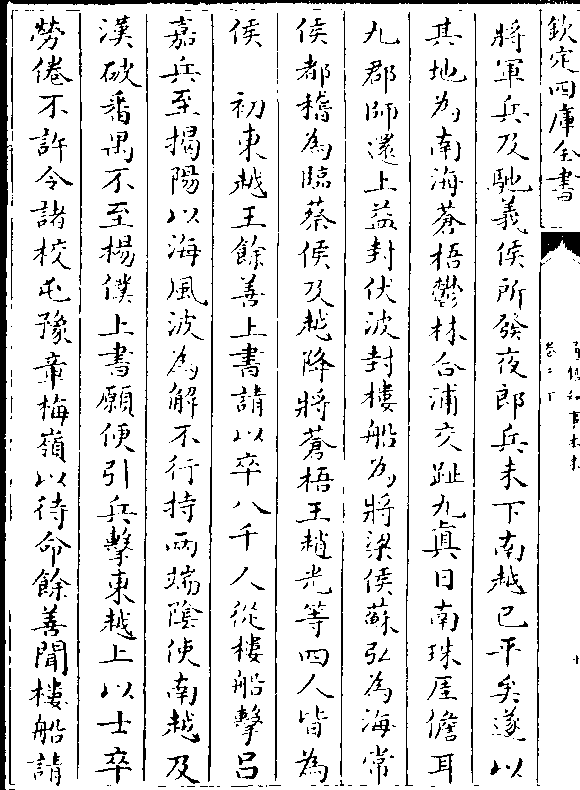 欽定四庫全書
將軍兵及馳義侯所發夜郎兵未下南越已平矣遂以
其地為南海蒼梧鬱林合浦交趾九真日南珠厓儋耳
九郡師還上益封伏波封樓船為將梁侯蘇弘為海常
侯都稽為臨蔡侯及越降將蒼梧王趙光等四人皆為
侯　初東越王餘善上書請以卒八千人從樓船擊呂
嘉兵至揭陽以海風波為解不行持兩端陰使南越及
漢破番禺不至楊僕上書願便引兵擊東越上以士卒
勞倦不許令諸校屯豫章梅嶺以待命餘善聞樓船請